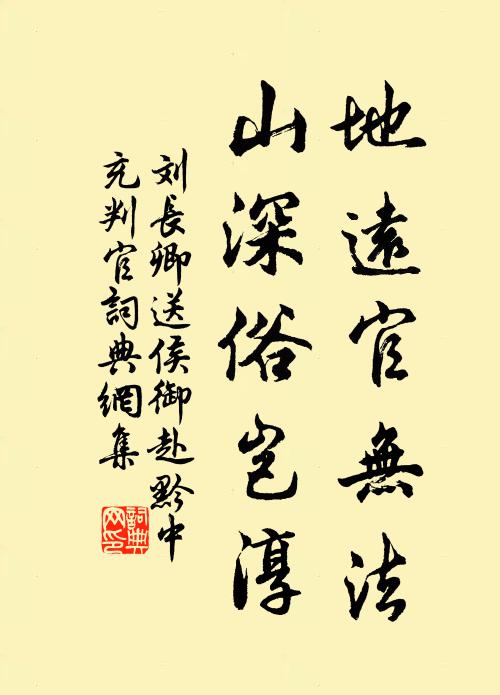 地遠官無法
山深俗岂淳
刘長卿送侯御赴黔中
充判官詞典網集
詞典
网印